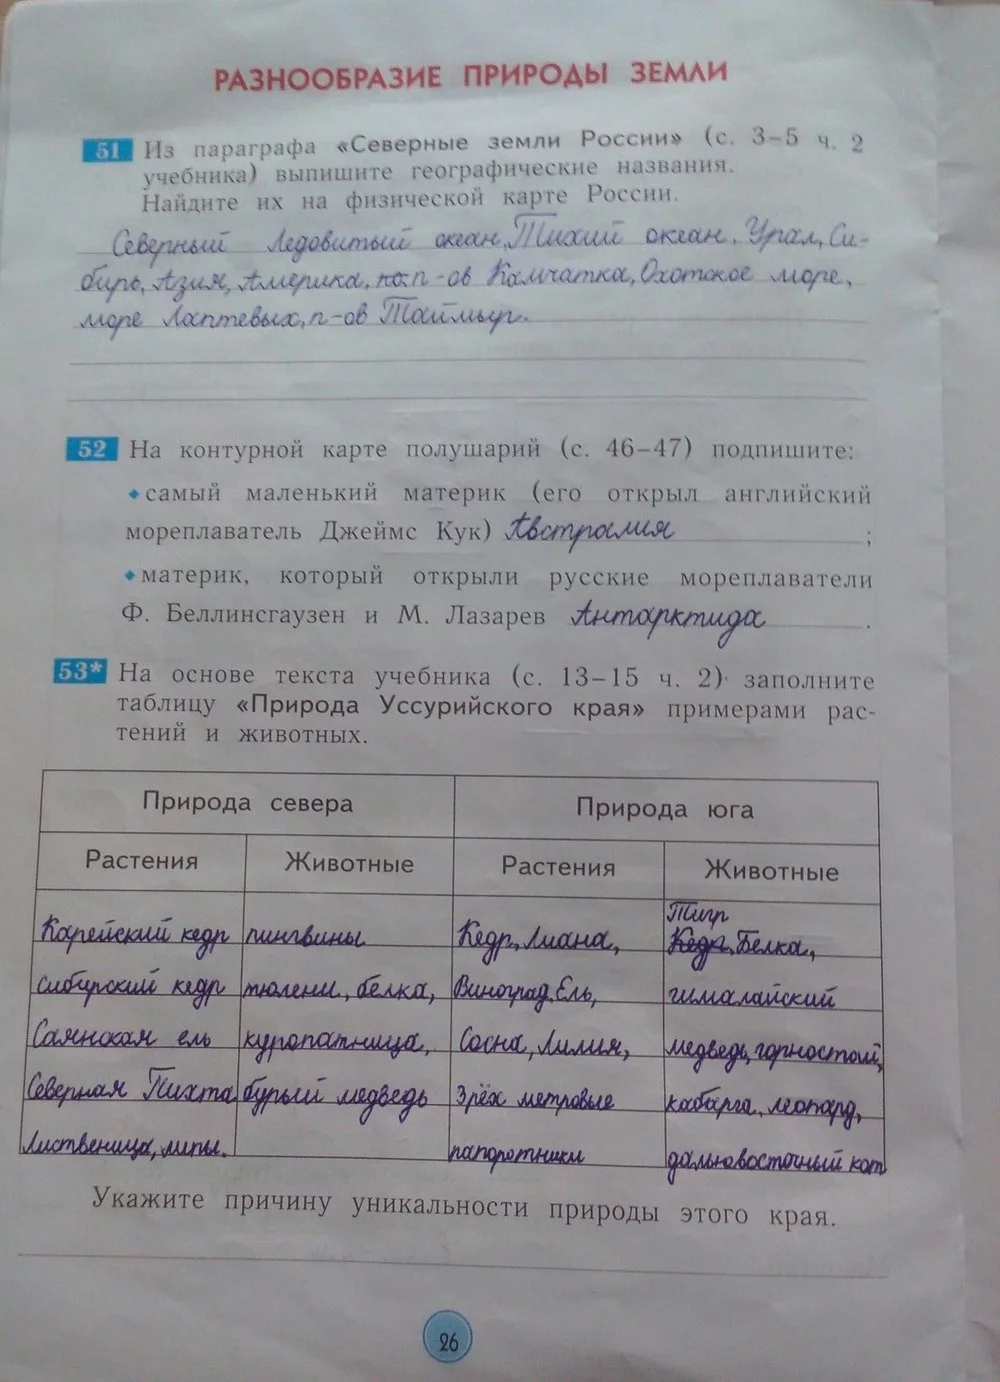 РАЗНООБРАЗИЕ ПРИРОДЫ ЗЕМЛИ
51 Из параграфа «Северные земли России» (с. 3–5 ч. 2
учебника) выпишите географические названия.
Найдите их на физической карте России.
Северный Ледовитый океан, Тихий океан, Урал, Си-
бирь, Азия, Америка, п-ов Камчатка, Охотское море,
море Лаптевых, п-ов Таймыр.
52 На контурной карте полушарий (с. 46–47) подпишите:
самый маленький материк (его открыл английский
мореплаватель Джеймс Кук) Австралия ;
материк, который открыли русские мореплаватели
Ф. Беллинсгаузен и М. Лазарев Антарктида .
53* На основе текста учебника (с. 13–15 ч. 2) заполните
таблицу «Природа Уссурийского края» примерами рас-
тений и животных.
Природа севера Природа юга
Растения Животные Растения Животные
Тигр
Карейский кедр пингвины Кедр, Лиана, Кедр, Белка,
сибирский кедр тюлени, белка, Виноград, Ель, гималайский
Саянская ель куропатница, Сосна, Лилия, медведь, горностай,
Северная Пихта бурый медведь 3рёх метровые кабарга, леопард,
Лиственица, липы. папоротники дальновосточный кот
Укажите причину уникальности природы этого края.
26